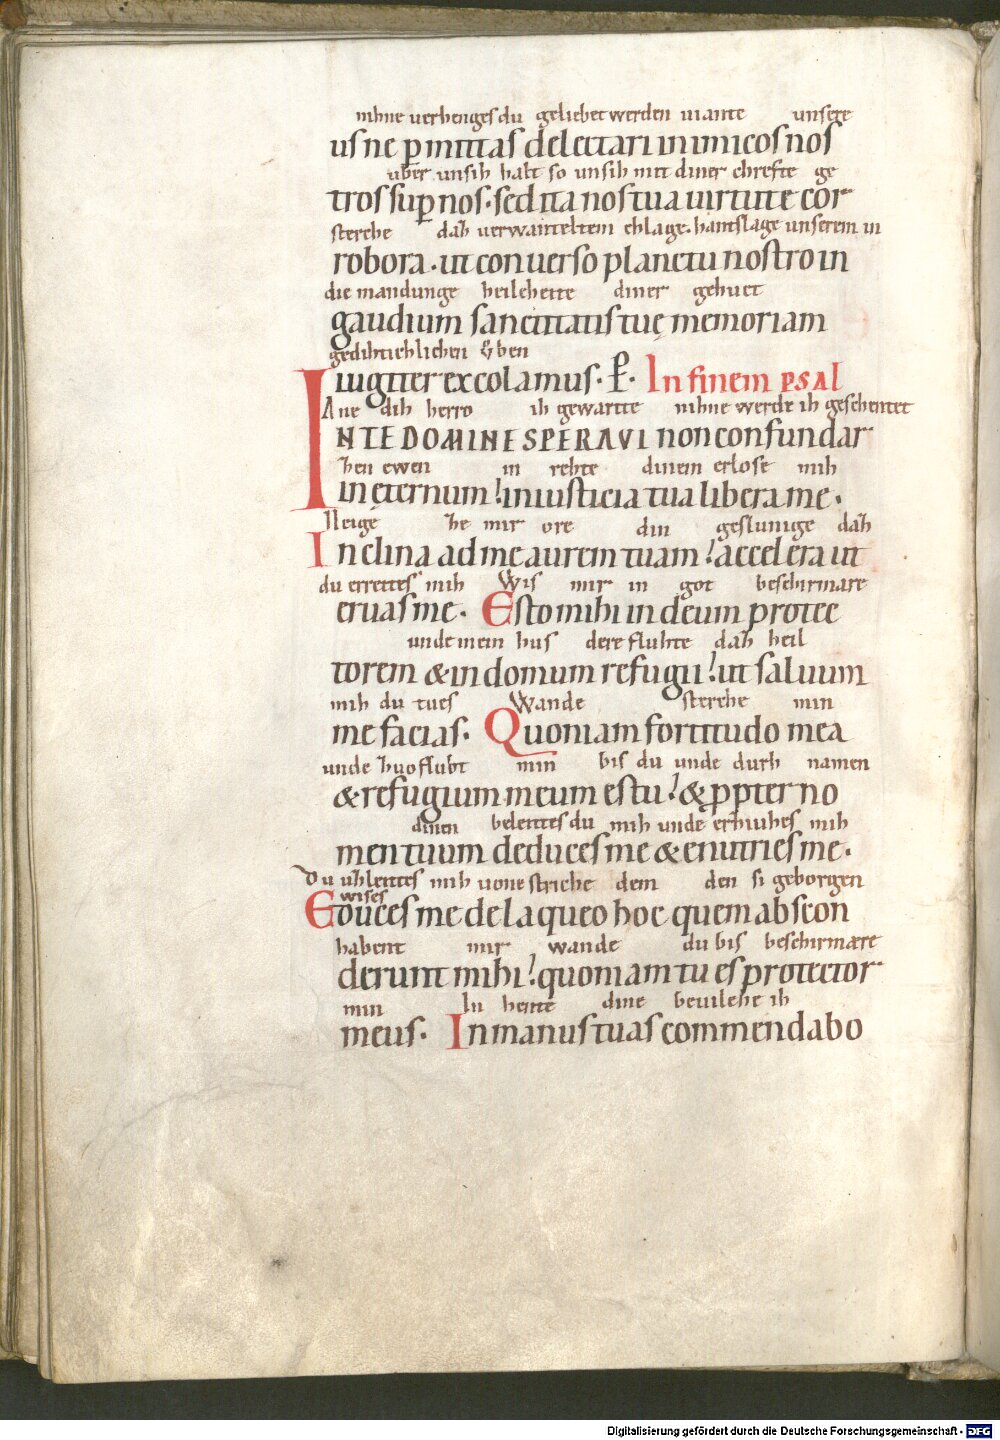 nihne uerhenges du geliebet werden uiante unsere
us ne ꝑmittas delectari inimicos nos
uber unsih halt so unsih mit diner chrefte ge
tros suꝑ nos· sed ita nos tua uirtute cor
sterche dah uerwanteltem chlage· hantslage unserem in
robora· ut conuerso planctu nostro in
die mandunge heilcheite diner gehuct
gaudium sanctitatis tuę memoriam
gedihtichlichen & ben
iugiter excolamus· P· In finem PSAL
Ane dih herro ih gewartte nihne werde ih geschentet
INTE DOMINE SPERAVI non confundar
hen ewen in rehte dinem erlose mih
in ęternum! in iusticia tua libera me·
Neige he mir ore din geslunige dah
Inclina ad me aurem tuam! accelera ut
du errettes mih Wis mir in got beschirmare
eruas me· Esto mihi in deum protec
unde mein hus dere fluhte dah heil
torem & in domum refugii! ut saluum
mih du tues Wande sterche min
me facias· Quoniam fortitudo mea
unde huoflubt min bis du unde durh namen
& refugium meum es tu! & ꝓpter no
dinen beleittes du mih unde erhiuhes mih
men tuum deduces me & enutries me·
Du uhleittes mih uone striche dem den si geborgen
wises
Educes me de laqueo hoc quem abscon
habent mir wande du bis beschirmære
derunt mihi! quoniam tu es protector
min In hente dine beuilehe ih
meus· In manus tuas commendabo
Digitalisierung gefördert durch die Deutsche Forschungsgemeinschaft - DFG